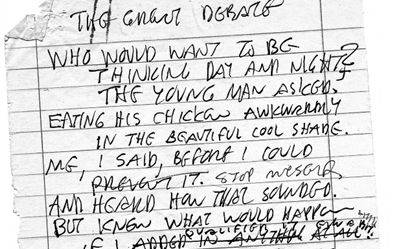 THE GREAT DEBATE
WHO WOULD WANT TO BE
THINKING DAY AND NIGHT?
THE YOUNG MAN ASKED.
EATING HIS CHICKEN AWKWARDLY
IN THE BEAUTIFUL COOL SHADE.
ME, I SAID, BEFORE I COULD
PREVENT IT. STOP MYSELF
AND HEARD HOW THAT SOUNDED.
BUT KNEW WHAT WOULD HAPPEN
QUALIFIED IT
IF I ADDED IN